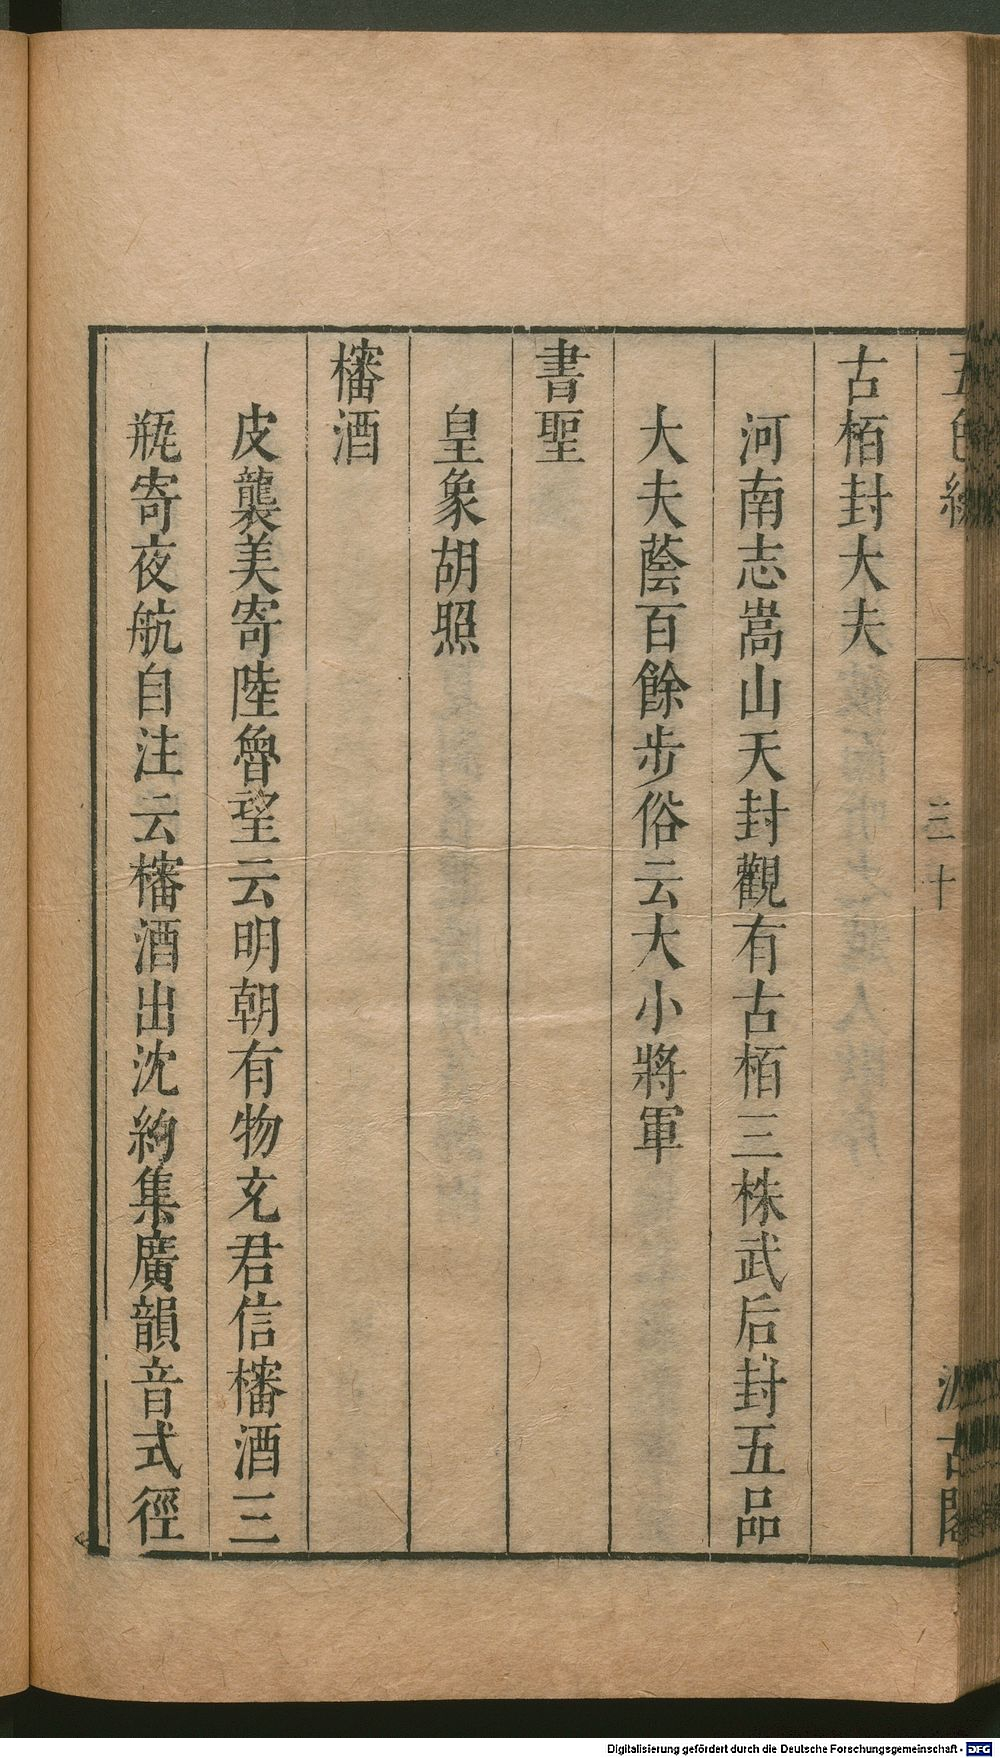 五色線
三十
汲古閣
古栢封大夫
河南志嵩山天封觀有古栢三株武后封五品
大夫蔭百餘步俗云大小將軍
書聖
皇象胡照
櫧酒
皮襲美寄陸魯望云明朝有物充君信櫧酒三
瓶寄夜航自注云櫧酒出沈約集廣韻音式徑
Digitalisierung gefördert durch die Deutsche Forschungsgemeinschaft - DFG